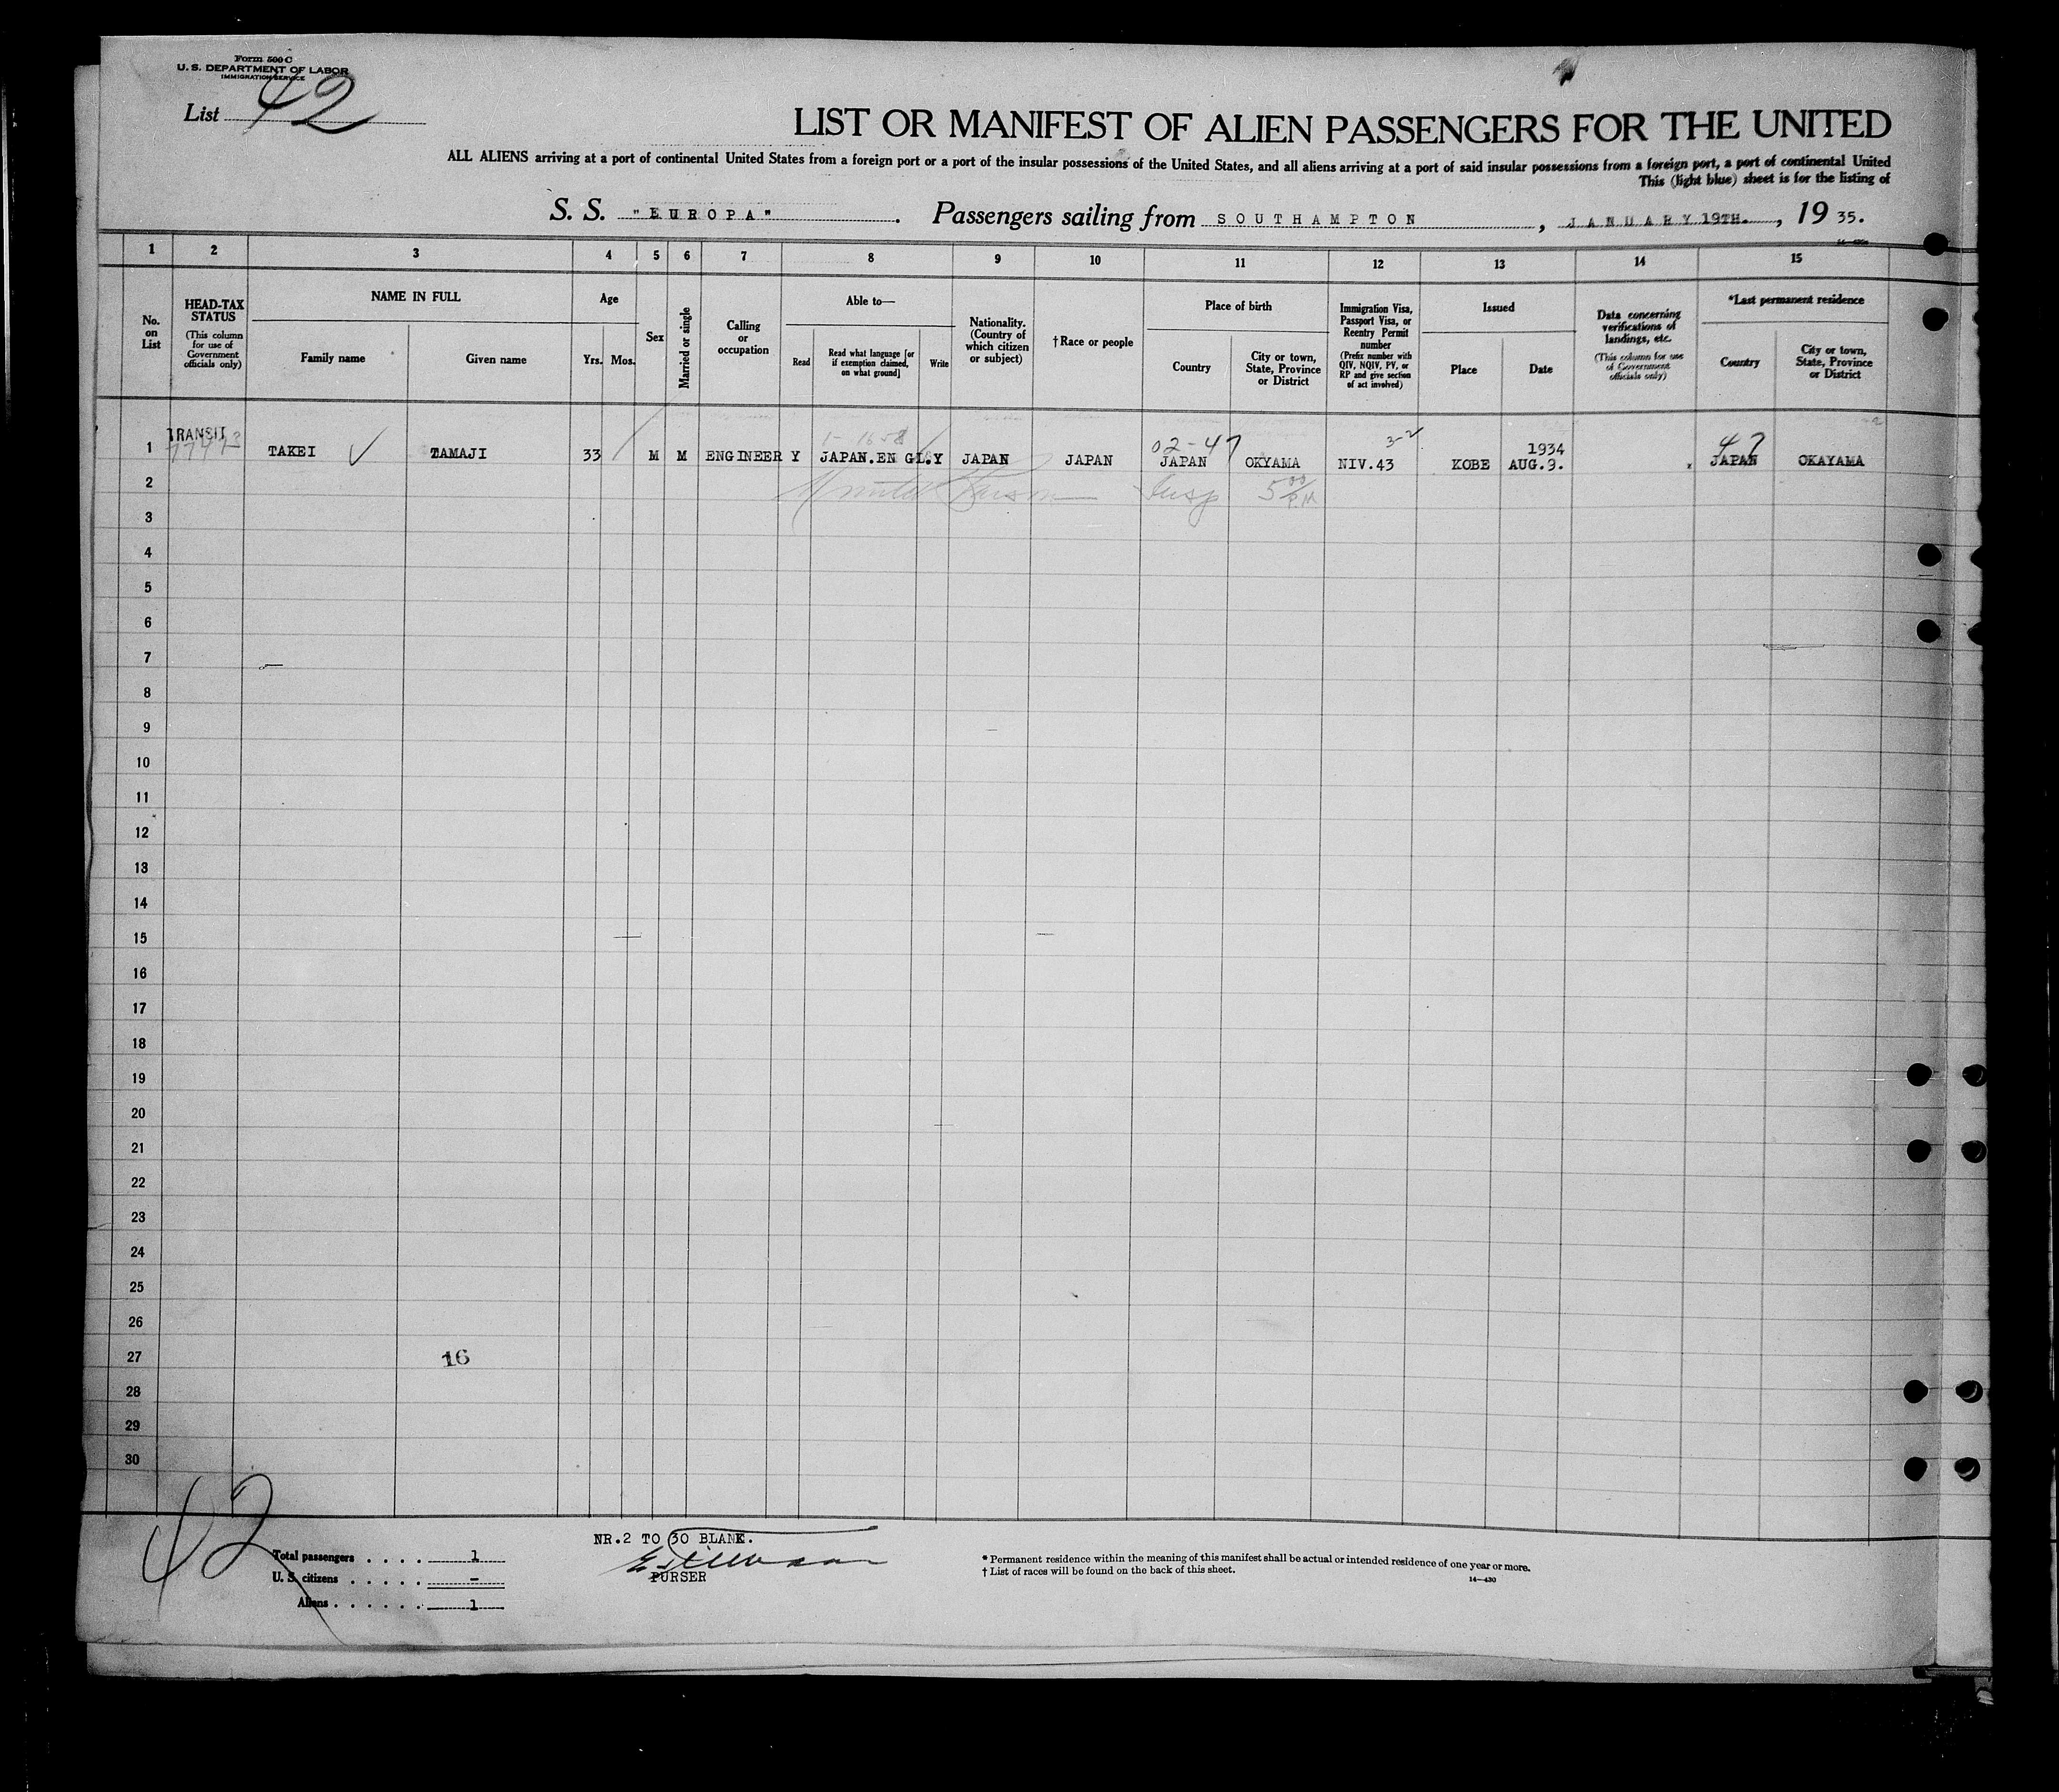 Form 500 C
U. S. DEPARTMENT OF LABOR
IMMIGRATION SERVICE
List 42
LIST OR MANIFEST OF ALIEN PASSENGERS FOR THE UNITED
ALL ALIENS arriving at a port of continental United States from a foreign port or a port of the insular possessions of the United States, and all aliens arriving at a port of said insular possessions from a foreign port, a port of continental United
This (light blue) sheet is for the listing of
S. S. "EUROPA". Passengers sailing from SOUTHAMPTON, JANUARY 19TH., 1935.
1 2 3 4 5 6 7 8 9 10 11 12 13 14 15
No. on List
HEAD-TAX STATUS
(This column for use of Government officials only)
NAME IN FULL
Family name
Given name
Age
Yrs. Mos.
Sex
Married or single
Calling or occupation
Able to—
Read
Read what language [or if exemption claimed, on what ground]
Write
Nationality. (Country of which citizen or subject)
†Race or people
Place of birth
Country
City or town, State, Province or District
Immigration Visa, Passport Visa, or Reentry Permit number
(Prefix number with QIV, NQIV, PV, or RP and give section of act involved)
Issued
Place
Date
Data concerning verifications of landings, etc.
(This column for use of Government officials only)
*Last permanent residence
Country
City or town, State, Province or District
02-47 3-2 1934 47
1 TRANSIT TAKEI TAMAJI 33 M M ENGINEER Y JAPAN.ENGL.Y JAPAN JAPAN JAPAN OKYAMA NIV.43 KOBE AUG.9. JAPAN OKAYAMA
2 Insp 5 00 P.M
3
4
5
6
7
8
9
10
11
12
13
14
15
16
17
18
19
20
21
22
23
24
25
26
27 16
28
29
30
42
NR.2 TO 30 BLANK.
PURSER
Total passengers . . . . 1
U. S. citizens . . . . . –
Aliens . . . . . . 1
* Permanent residence within the meaning of this manifest shall be actual or intended residence of one year or more.
† List of races will be found on the back of this sheet.
14—430